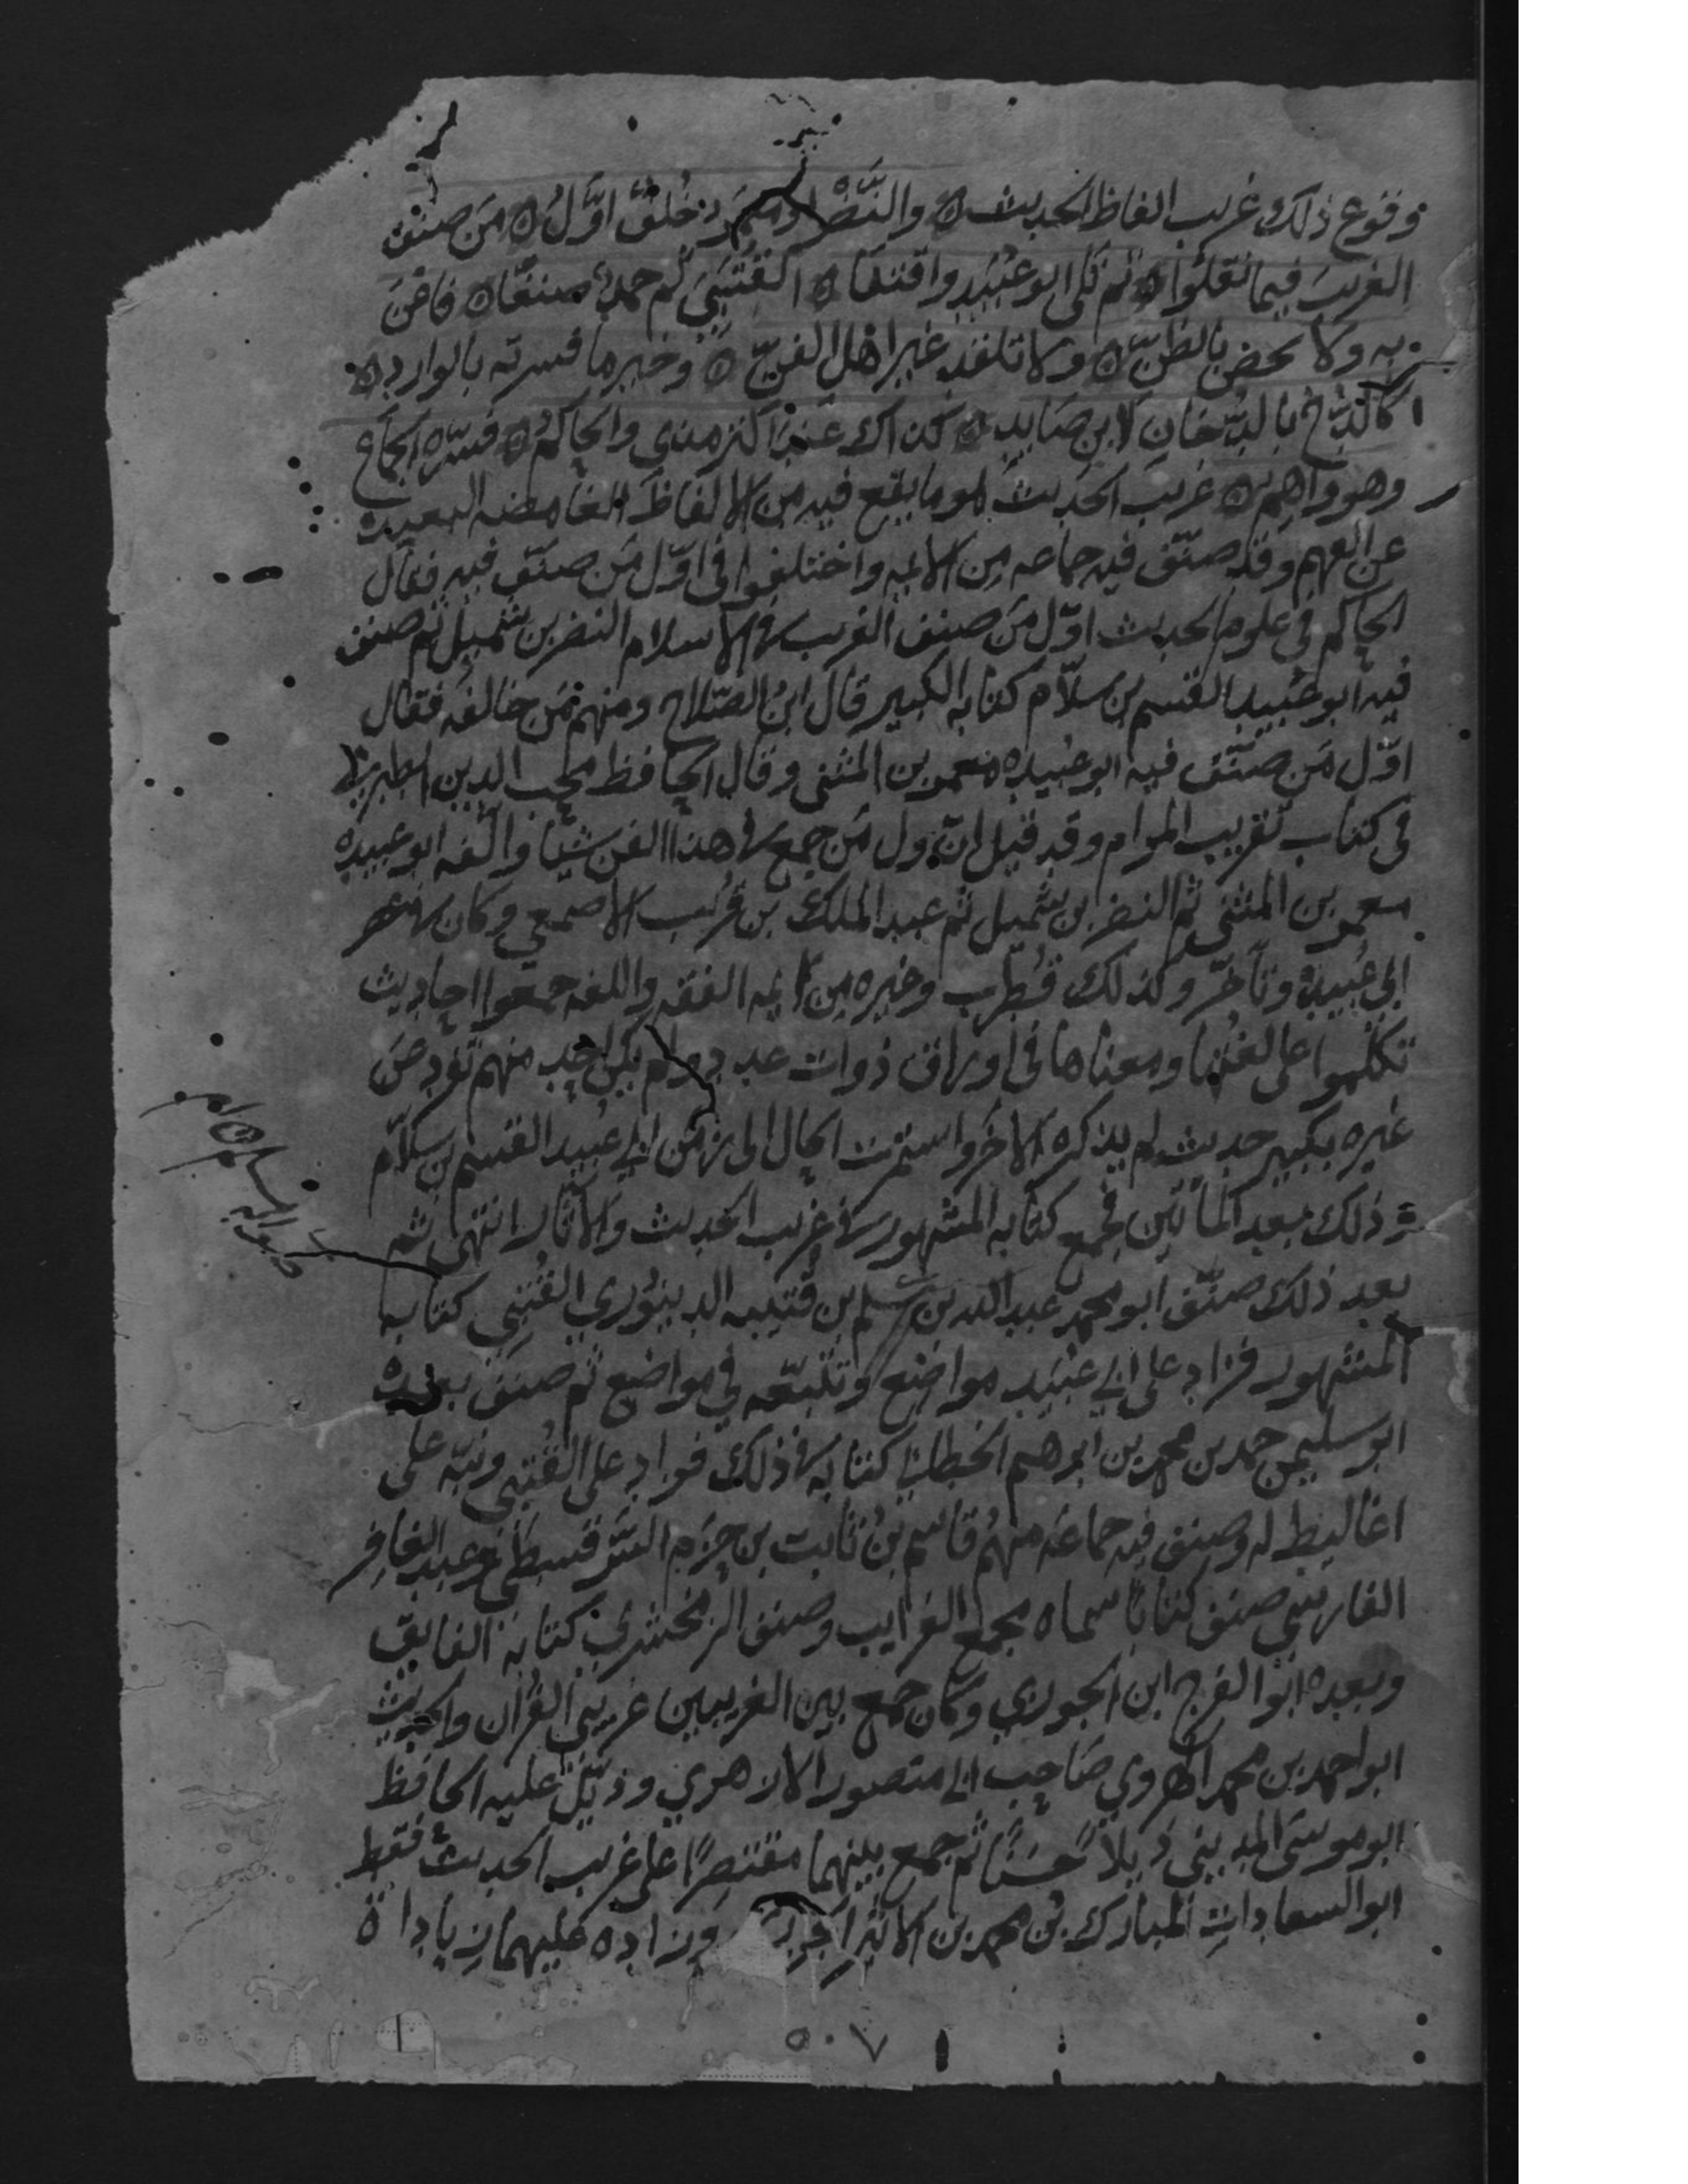 وقوع ذلك غريب الفاظ الحديث ه والنضر او معمر خلف اول ه من صنف
الغريب فيما نقلوا ه ثم تلى ابو عبيد واقتفا ه القتبي ثم حمد صنفا ه فاعن
به ولا تخض بالظن ه ولا تقلد غير اهل الفن ه وخير ما فسرته بالوارد ه
كالدخ بالدخان لابن صايد ه كذاك عند الترمذي والحاكم ه فسره الجماع
وهو واهم ه غريب الحديث هو ما يقع فيه من الالفاظ الغامضه البعيده
عن الفهم وقد صنف فيه جماعه من الايمه واختلفوا في اول من صنف فيه فقال
الحاكم في علوم الحديث اول من صنف الغريب في الاسلام النضر بن شميل ثم صنف
فيه ابو عبيد القسم بن سلام كتابه الكبير قال ابن الصلاح ومنهم من خالفه فقال
اول من صنف فيه ابو عبيده معمر بن المثنى وقال الحافظ محب الدين الطبري
في كتاب تقريب المرام وقد قيل ان اول من جمع في هذا الفن شيا والفه ابو عبيده
معمر بن المثنى ثم النضر بن شميل ثم عبد الملك بن قريب الاصمعي وكان في عصر
ابي عبيدة وتاخر وكذلك قطرب وغيره من ايمه الفقه واللغه جمعوا احاديث
تكلموا على لغتها ومعناها في اوراق ذوات عدد ولم يكن احد منهم تفرد عن
غيره بكبير حديث لم يذكره الاخر واستمرت الحال الى زمن ابي عبيد القسم بن سلام
وذلك بعد المائتين فجمع كتابه المشهور في غريب الحديث والاثار انتهى ثم
بعد ذلك صنف ابو محمد عبد الله بن مسلم بن قتيبه الدينوري القتبي كتابه
المشهور فزاد على ابي عبيد مواضع وتتبعه في مواضع ثم صنف بعده
ابو سليمن حمد بن محمد بن ابرهيم الخطابي كتابه في ذلك فزاد على القتبي ونبه على
اغاليط له وصنف فيه جماعه منهم قاسم بن ثابت بن حزم السرقسطي وعبد الغافر
الفارسي صنف كتابا سماه مجمع الغرايب وصنف الزمخشري كتابه الفايق
وبعده ابو الفرج ابن الجوزي وكان جمع بين الغريبين غريبي القران والحديث
ابو احمد بن محمد الهروي صاحب ابي منصور الازهري وذيل عليه الحافظ
ابو موسى المديني ذيلا حسنا ثم جمع بينهما مقتصرا على غريب الحديث فقط
ابو السعادات المبارك بن محمد بن الاثير الجزري وزاده عليهما زيادات
٥٠٧